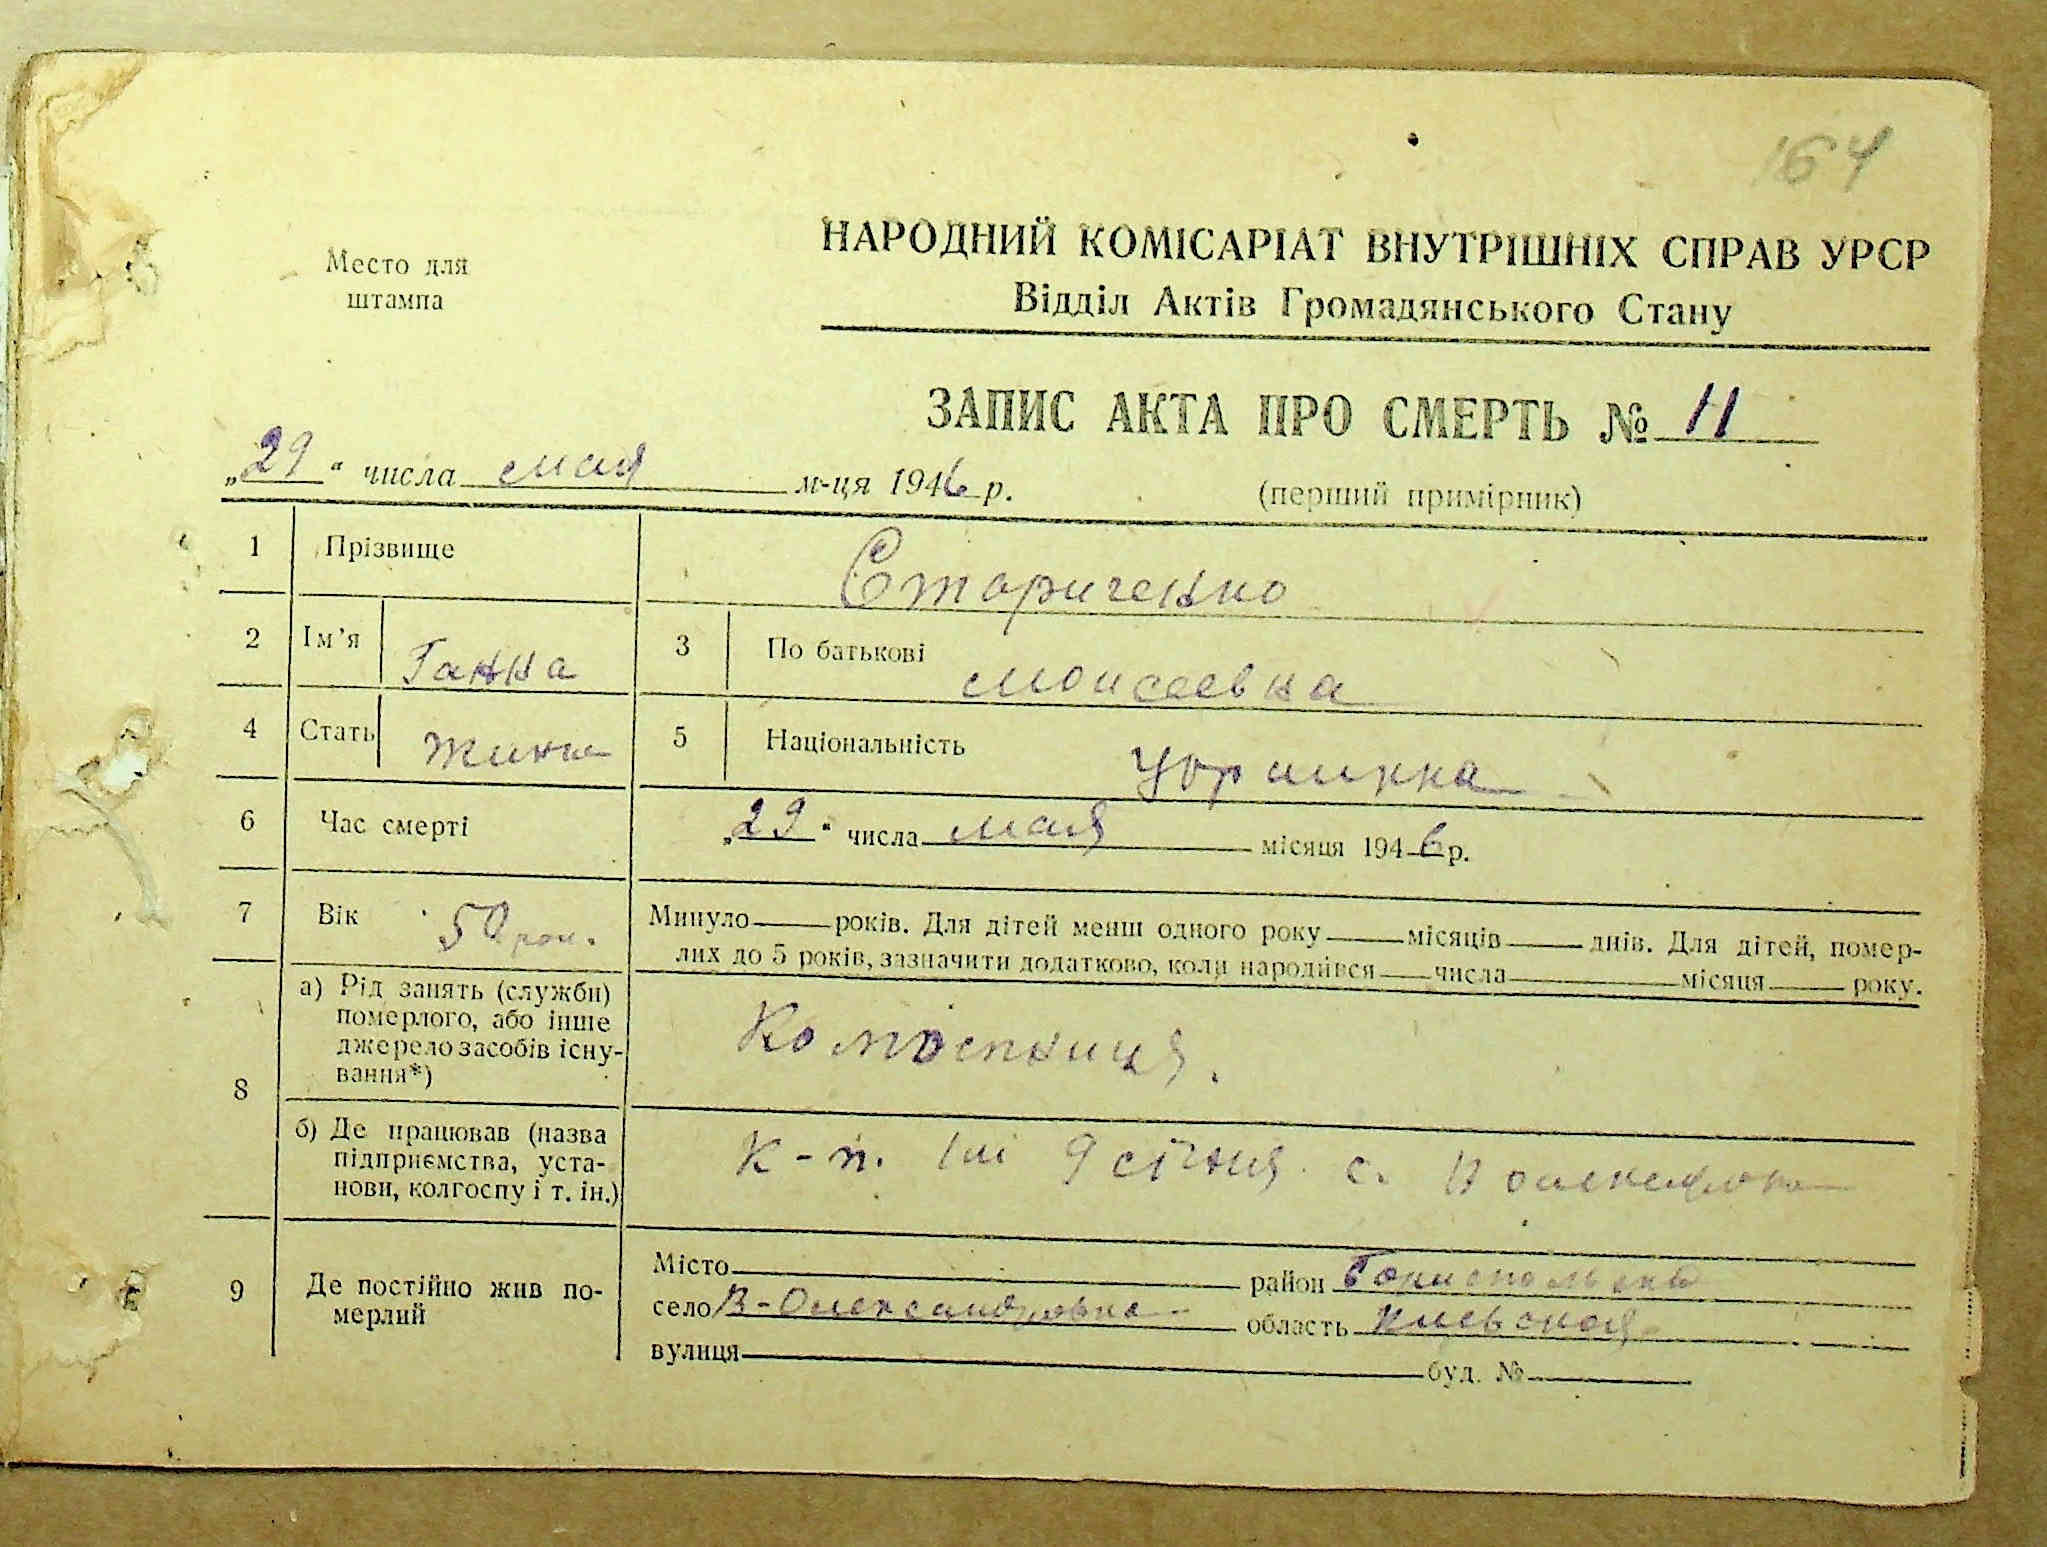 164
Место для
штампа
НАРОДНИЙ КОМІСАРІАТ ВНУТРІШНІХ СПРАВ УРСР
Відділ Актів Громадянського Стану
ЗАПИС АКТА ПРО СМЕРТЬ № 11
„29“ числа мая м-ця 1946 р.
(перший примірник)
1 Прізвище Стариченко
2 Ім’я Ганна 3 По батькові Моисеевна
4 Стать 5 Національність
6 Час смерті „29“ числа мая місяця 1946 р.
7 Вік 50 рок. Минуло років. Для дітей менш одного року місяців днів. Для дітей, помер-
лих до 5 років, зазначити додатково, коли народився числа місяця року.
8 а) Рід занять (служби)
померлого, або інше
джерело засобів існу-
вання*)
б) Де працював (назва
підприємства, уста-
нови, колгоспу і т. ін.)
к-п. Ім 9 січня с.
9 Де постійно жив по-
мерлий
Місто район Бориспольский
село В-Олександровка область Киевская
вулиця буд. №